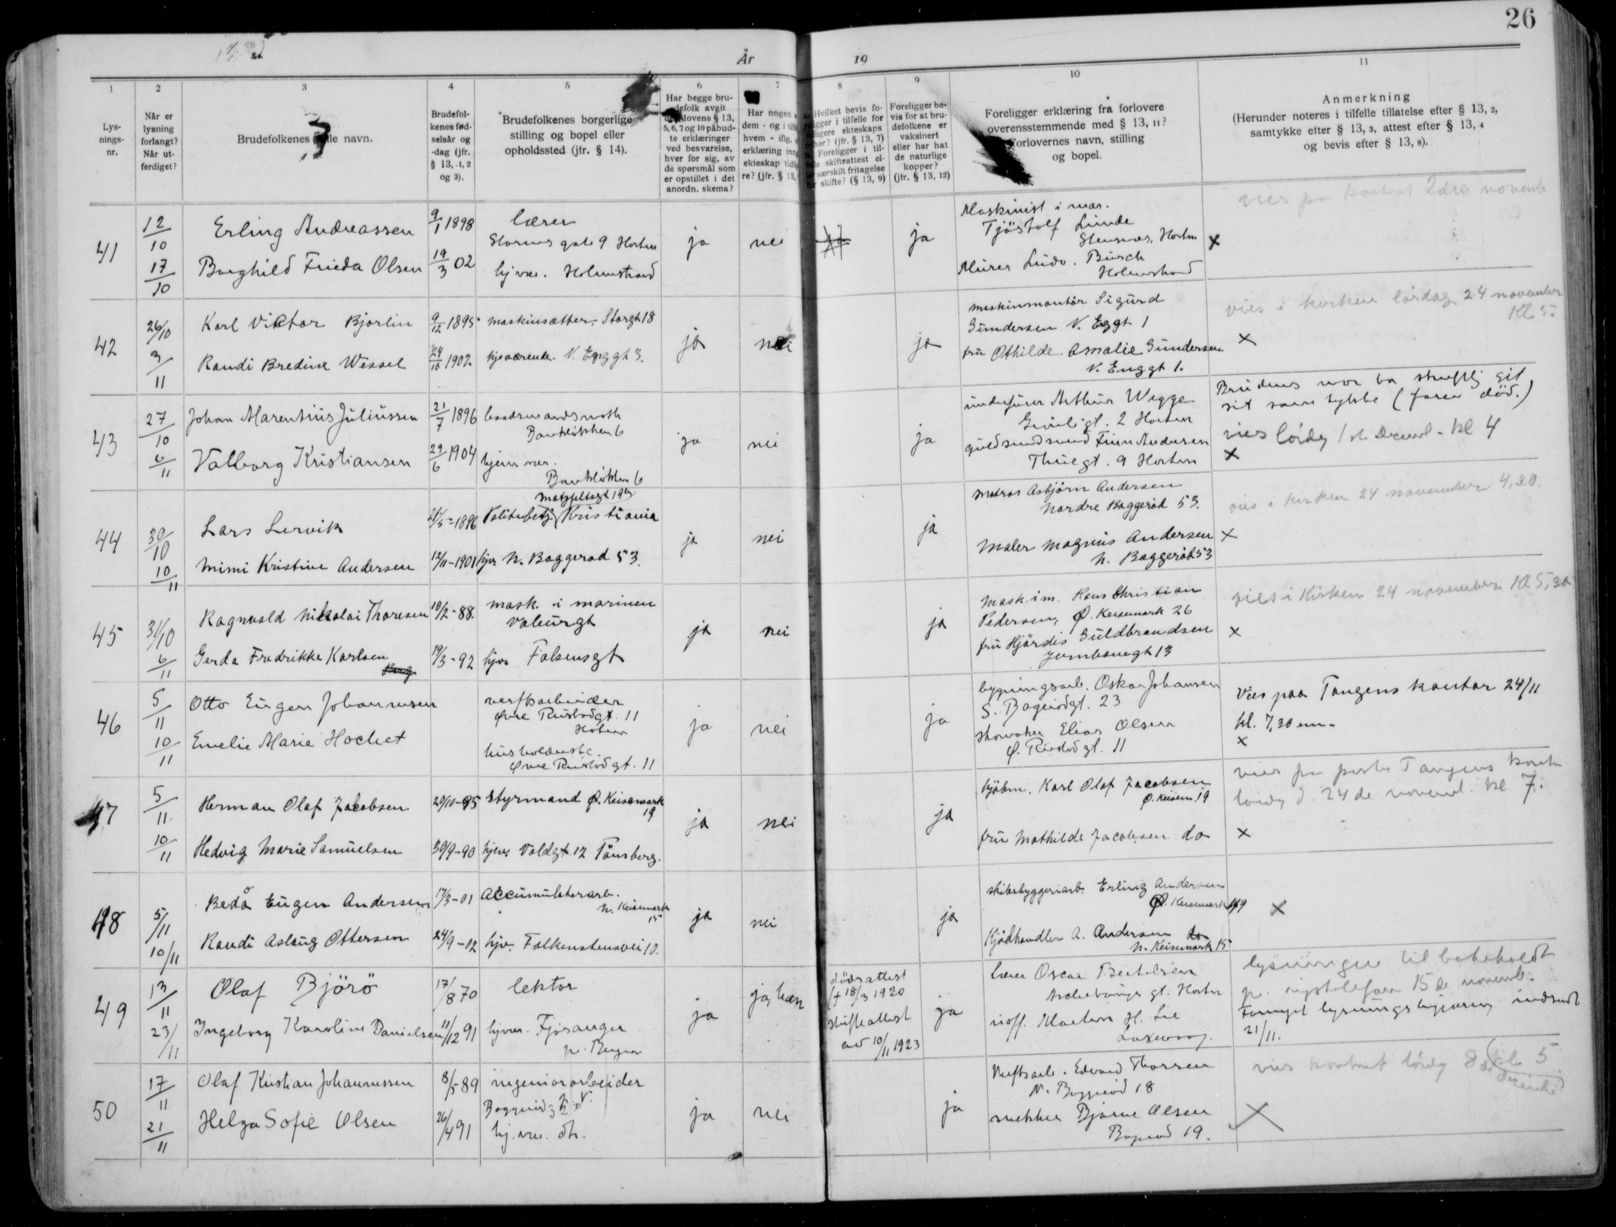 26
År
19
1
2
3
4
5
6
7
8
9
10
11
Lys-
nings-
nr.
Når er
lysning
forlangt?
Når ut-
ferdiget?
Brudefolkenes navn.
Brudefol-
kenes fød-
selsår og
-dag (jfr.
§ 13, 1, 2
og 3).
Brudefolkenes borgerlige
stilling og bopel eller
opholdssted (jfr. § 14).
Har begge bru-
defolk avgit
lovens § 13,
5, 6, 7 og 10 påbud-
te erklæringer
ved besvarelse,
hver for sig, av
de spørsmål som
er opstillet i det
anordn. skema?
Har nogen
dem - og i
hvem - ifig.
erklæring
ekteskap
re? (jfr. § 13,
Hvilket bevis fo-
religger i tilfelle for
ekteskaps
(jfr. § 13, 7)
Foreligger i til-
skifteattest el-
særskilt fritagelse
skifte? (§ 13, 9)
Foreligger be-
vis for at bru-
defolkene er
vaksinert
eller har hat
de naturlige
kopper?
(jfr. § 13, 12)
Foreligger erklæring fra forlovere
overensstemmende med § 13, 11?
Forlovernes navn, stilling
og bopel.
Anmerkning
(Herunder noteres i tilfelle tillatelse efter § 13, 2,
samtykke efter § 13, 3, attest efter § 13, 4
og bevis efter § 13, 8).
41
12/10
17/10
Erling Andreassen
Borghild Frieda Olsen
9/1 1898
19/3 02
lærer
Storms gate 9 Horten
hjvær. Holmestrand
ja
nei
ja
Maskinist i mar.
Tjöstolf Linde
Horten
Murer Ludv. Busch
Holmestrand
x
42
26/10
3/11
Karl Viktor Bjorlin
Randi Bredine Wessel
9/12 1895
24/10 1902
maskinsætter. Storgt 18
hjværende. V. Enggt 3.
ja
nei
ja
maskinmontör Sigurd
Gundersen V. Enggt 1
fru Othilde Amalie Gundersen
V. Enggt 1.
vies i kirken lördag 24 november
Kl. 5
x
43
27/10
6/11
Johan Marentius Juliussen
Valborg Kristiansen
21/7 1896
29/6 1904
baadsmandsmath
Bankløkken 6
hjem vær.
Bankløkken 6
ja
nei
ja
Arthur Wegge
2 Horten
Finn Andersen
Thuegt. 9 Horten
Brudens mor har skriftlig git
sit samtykke (faren död.)
vies lördag 1ste Decemb. kl 4
x
44
30/10
10/11
Lars Lervik
Mimi Kristine Andersen
21/5-1896
13/11-1901
Politibetj. Kristiania
hjv N. Baggerød 53.
ja
nei
ja
matros Asbjörn Andersen
Nordre Baggeröd 53.
Maler Magnus Andersen
N. Baggeröd 53
vies i kirken 24 november 4,30.
x
45
31/10
6/11
Ragnvald Nikolai Thoresen
Gerda Fredrikke Karlsen
10/2-88.
19/3-92
mask. i marinen
Valeurgt
hjv. Falsensgt
ja
nei
ja
Mask. i m. Hans Christian
Pedersen, Ø. Keisemark 26
fru Hjördis Guldbrandsen
Jernbanegt 13
vies i Kirken 24 november Kl. 5,30
x
46
5/11
10/11
Otto Eugen Johannesen
Emelie Marie Hochet
verftsarbeider
Øvre 11
Horten
11
ja
nei
ja
bygningsarb. Oskar Johansen
S. Bagerødgt. 23
skomaker Elias Olsen
11
Vies paa Tangens kontor 24/11
kl. 7,30 em.
x
47
5/11
10/11
Herman Olaf Jakobsen
Hedvig Marie Samuelsen
29/10-95
30/9-90
Styrmand Ø. Keisemark
19
hjvær. Voldgt 12 Tönsberg.
ja
nei
ja
Karl Olaf Jacobsen
Ø. Keisem. 19
fru Mathilde Jacobsen do
24de novemb. kl 7.
x
48
5/11
10/11
Reda Eugen Andersen
Randi Aslaug Ottersen
17/3-01
24/9-12
Accumulatorarb.
N. Keisemark
15
hjv. Falkenstensvei 10.
ja
nei
ja
skibsbyggeriarb. Erling Andersen
Ø. Keisemark 19
Kjödhandler A. Andersen
N. Keisemark 15
x
49
13/11
23/11
Olaf Björö
Ingeborg Karoline Danielsen
17/8 70
11/12 91
lektor
hjvær. Fjösanger
pr. Bergen
ja
ja, han
dödsattest
(+ 18/3 1920
skifteattest
av 10/11 1923
ja
lærer Oscar Bertelsen
gt. Horten
uoff.
lysningen tilbakeholdt
15de novemb.
Fornyet indsendt
21/11.
50
17/11
21/11
Olaf Kristian Johannessen
Helga Sofie Olsen
8/5-89
26/4 91
ingeniörarbejder
hj. vær. do.
ja
nei
ja
Verftsarb. Edvard Thorsen
N. Baggeröd 18
snekker Bjarne Olsen
19.
kl. 5